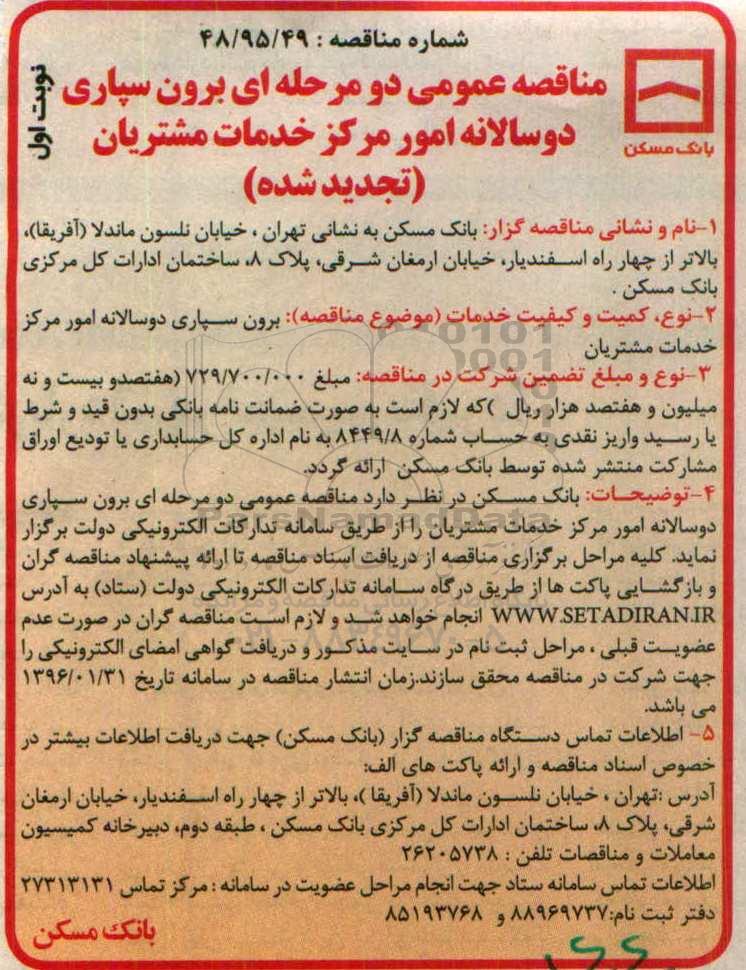 شماره مناقصه : ۴۸/۹۵/۴۹
نوبت اول
مناقصه عمومی دو مرحله ای برون سپاری
دوسالانه امور مرکز خدمات مشتریان
(تجدید شده)
بانک مسکن
۱-نام و نشانی مناقصه گزار: بانک مسکن به نشانی تهران ، خیابان نلسون ماندلا (آفریقا)،
بالاتر از چهار راه اسفندیار، خیابان ارمغان شرقی، پلاک ۸، ساختمان ادارات کل مرکزی
بانک مسکن .
۲-نوع، کمیت و کیفیت خدمات (موضوع مناقصه): برون سپاری دوسالانه امور مرکز
خدمات مشتریان
۳-نوع و مبلغ تضمین شرکت در مناقصه: مبلغ ۷۲۹/۷۰۰/۰۰۰ (هفتصدو بیست و نه
میلیون و هفتصد هزار ریال )که لازم است به صورت ضمانت نامه بانکی بدون قید و شرط
یا رسید واریز نقدی به حساب شماره ۸۴۴۹/۸ به نام اداره کل حسابداری یا تودیع اوراق
مشارکت منتشر شده توسط بانک مسکن ارائه گردد.
۴-توضیحات: بانک مسکن در نظر دارد مناقصه عمومی دو مرحله ای برون سپاری
دوسالانه امور مرکز خدمات مشتریان را از طریق سامانه تدارکات الکترونیکی دولت برگزار
نماید. کلیه مراحل برگزاری مناقصه از دریافت اسناد مناقصه تا ارائه پیشنهاد مناقصه گران
و بازگشایی پاکت ها از طریق درگاه سامانه تدارکات الکترونیکی دولت (ستاد) به آدرس
WWW.SETADIRAN.IR انجام خواهد شد و لازم است مناقصه گران در صورت عدم
عضویت قبلی ، مراحل ثبت نام در سایت مذکور و دریافت گواهی امضای الکترونیکی را
جهت شرکت در مناقصه محقق سازند.زمان انتشار مناقصه در سامانه تاریخ ۱۳۹۶/۰۱/۳۱
می باشد.
۵- اطلاعات تماس دستگاه مناقصه گزار (بانک مسکن) جهت دریافت اطلاعات بیشتر در
خصوص اسناد مناقصه و ارائه پاکت های الف:
آدرس :تهران ، خیابان نلسون ماندلا (آفریقا )، بالاتر از چهار راه اسفندیار، خیابان ارمغان
شرقی، پلاک ۸، ساختمان ادارات کل مرکزی بانک مسکن ، طبقه دوم، دبیرخانه کمیسیون
معاملات و مناقصات تلفن : ۲۶۲۰۵۷۳۸
اطلاعات تماس سامانه ستاد جهت انجام مراحل عضویت در سامانه : مرکز تماس ۲۷۳۱۳۱۳۱
دفتر ثبت نام:۸۸۹۶۹۷۳۷ و ۸۵۱۹۳۷۶۸
بانک مسکن